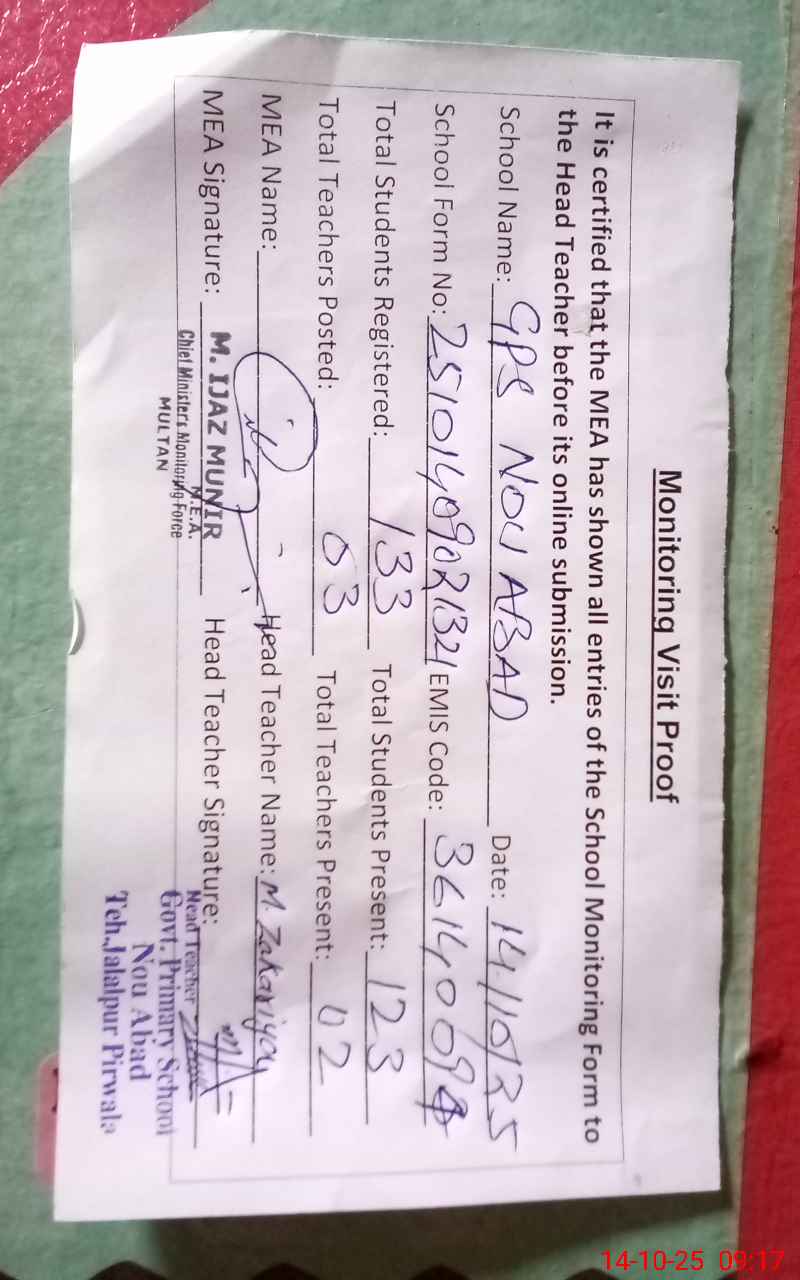 Monitoring Visit Proof
It is certified that the MEA has shown all entries of the School Monitoring Form to
the Head Teacher before its online submission.
School Name: GPS NOU ABAD Date: 14/10/25
School Form No: 25101409021321 EMIS Code:
Total Students Registered: 133 Total Students Present: 123
Total Teachers Posted: 03 Total Teachers Present: 02
MEA Name: Head Teacher Name: M. Zakariya
MEA Signature: Head Teacher Signature:
M. IJAZ MUNIR
M.E.A.
Chief Ministers Monitoring Force
MULTAN
Head Teacher
Govt. Primary School
Nou Abad
Teh. Jalalpur Pirwala
14-10-25 09:17